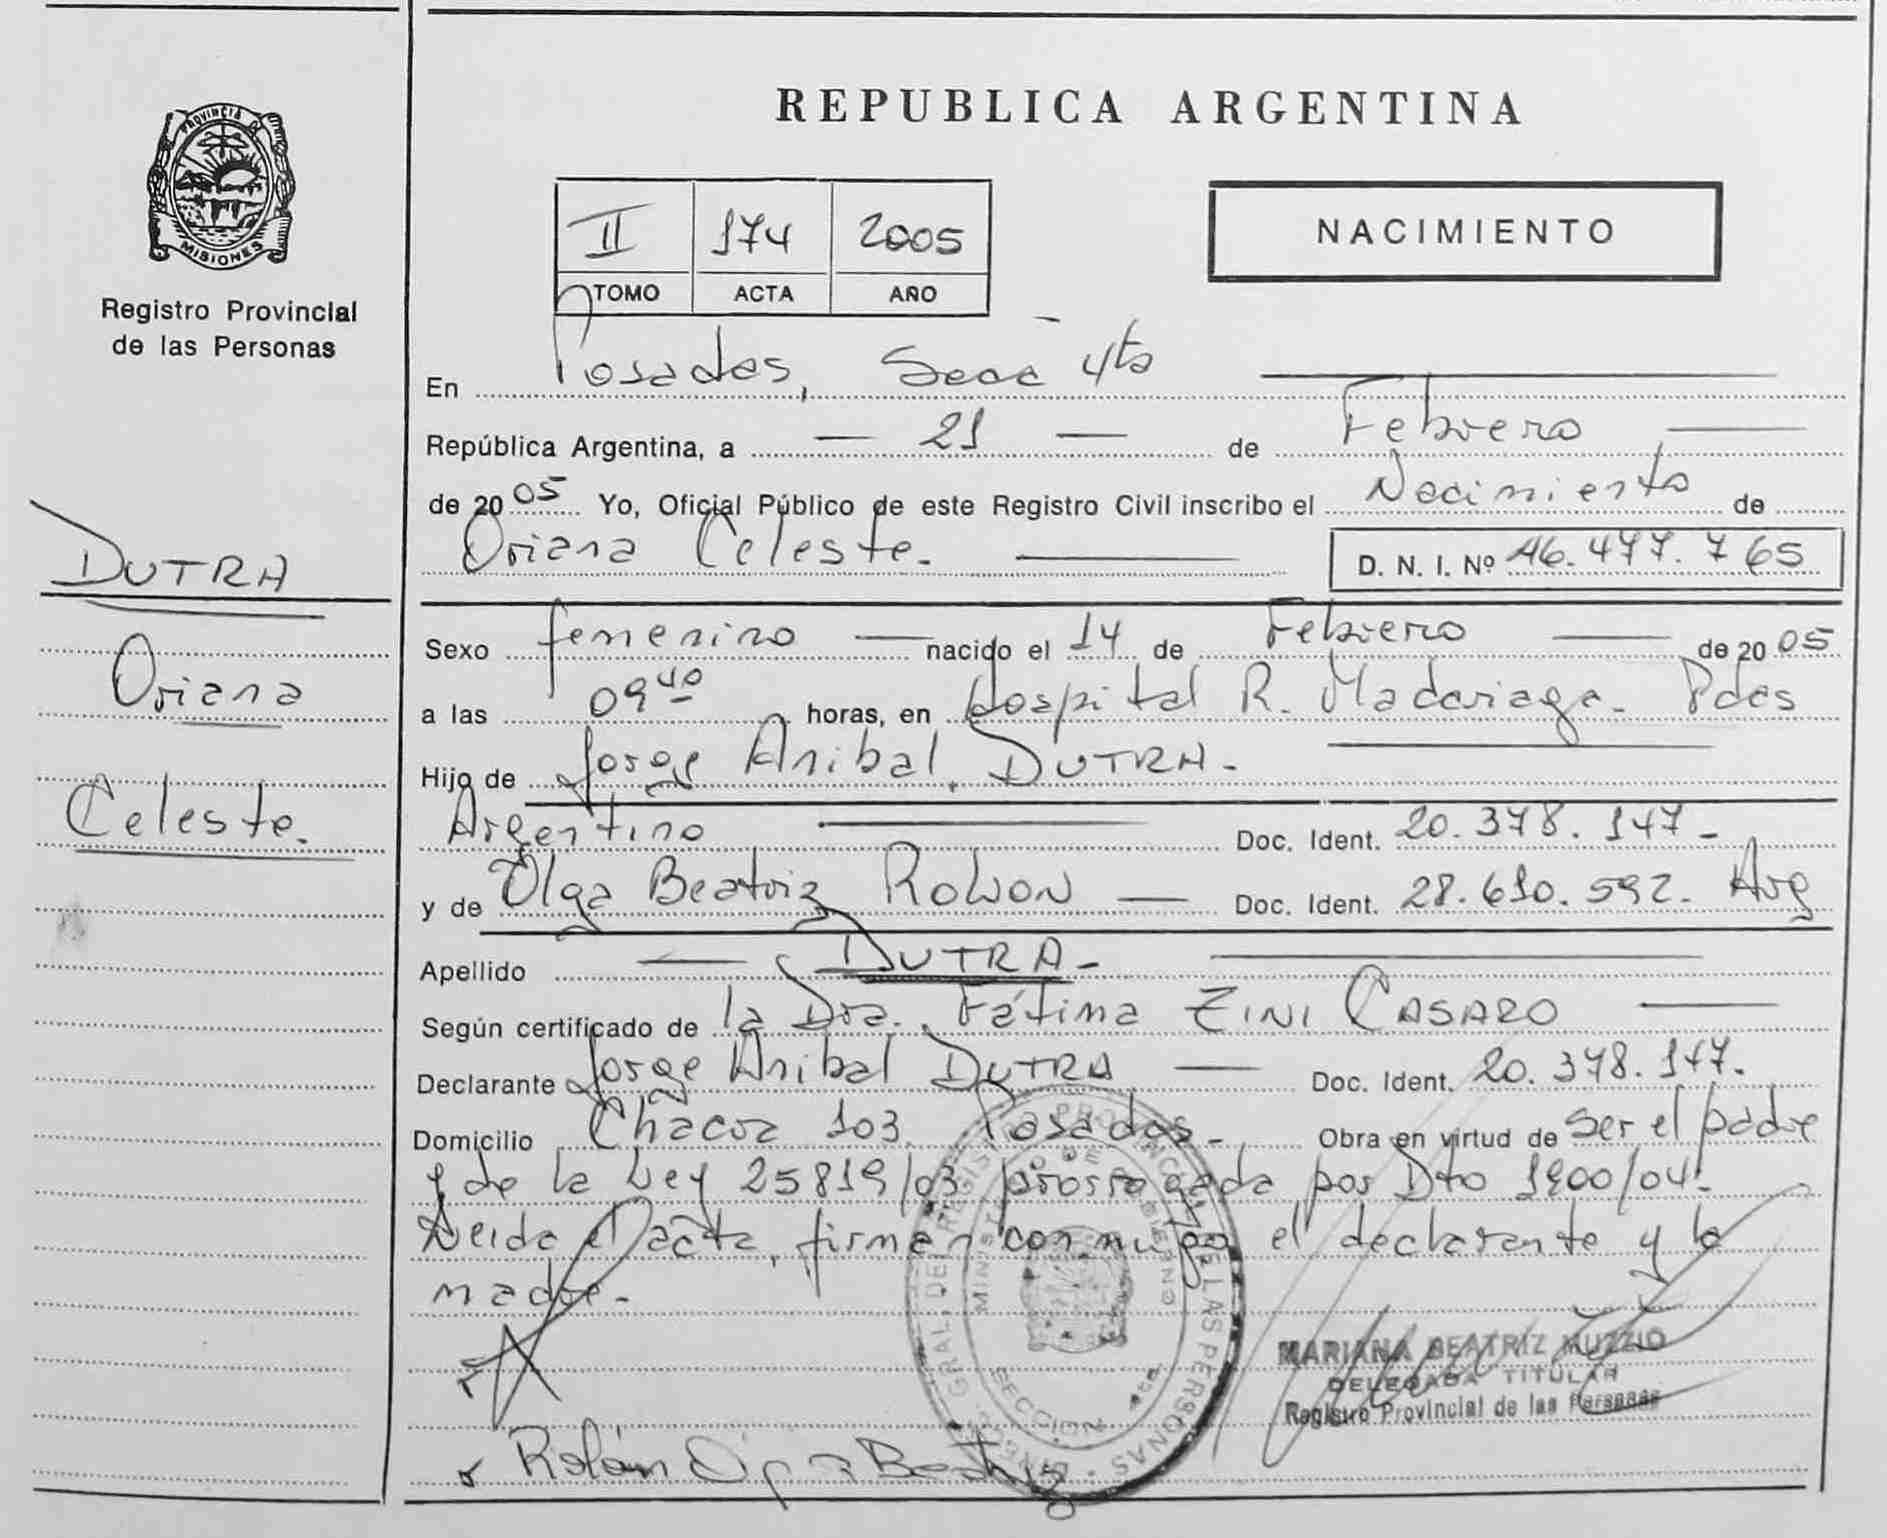 PROVINCIA DE
MISIONES
Registro Provincial
de las Personas
DUTRA
Oriana
Celeste.
REPUBLICA ARGENTINA
II 174 2005
TOMO ACTA AÑO
NACIMIENTO
En Posadas, Secc 4ta
República Argentina, a — 21 — de Febrero —
de 2005 Yo, Oficial Público de este Registro Civil inscribo el Nacimiento de
Oriana Celeste. — D. N. I. Nº 46.477.765
Sexo femenino — nacido el 14 de Febrero — de 2005
a las 09 40 horas, en Hospital R. Madariaga. Pdas
Hijo de Jorge Anibal, DUTRA. —
Argentino — Doc. Ident. 20.378.147-
y de Olga Beatriz ROLON — Doc. Ident. 28.610.592. Arg
Apellido — DUTRA- —
Según certificado de la Dra. Fátima ZINI CASARO —
Declarante Jorge Anibal DUTRA — Doc. Ident. 20.378.147.
Domicilio Chacra 103 Posadas-. Obra en virtud de ser el padre
y de la Ley 25819/03 prorrogada por Dto 1900/04.
Leida el acta, firman conmigo el declarante y la
madre-
MARIANA BEATRIZ MUZZIO
DELEGADA TITULAR
Registro Provincial de las Personas
Rolón Olga Beatriz
DIRECC. GRAL. DEL REGISTRO PROVINCIAL DE LAS PERSONAS
MINISTERIO DE GOBIERNO
SECCION 4ta